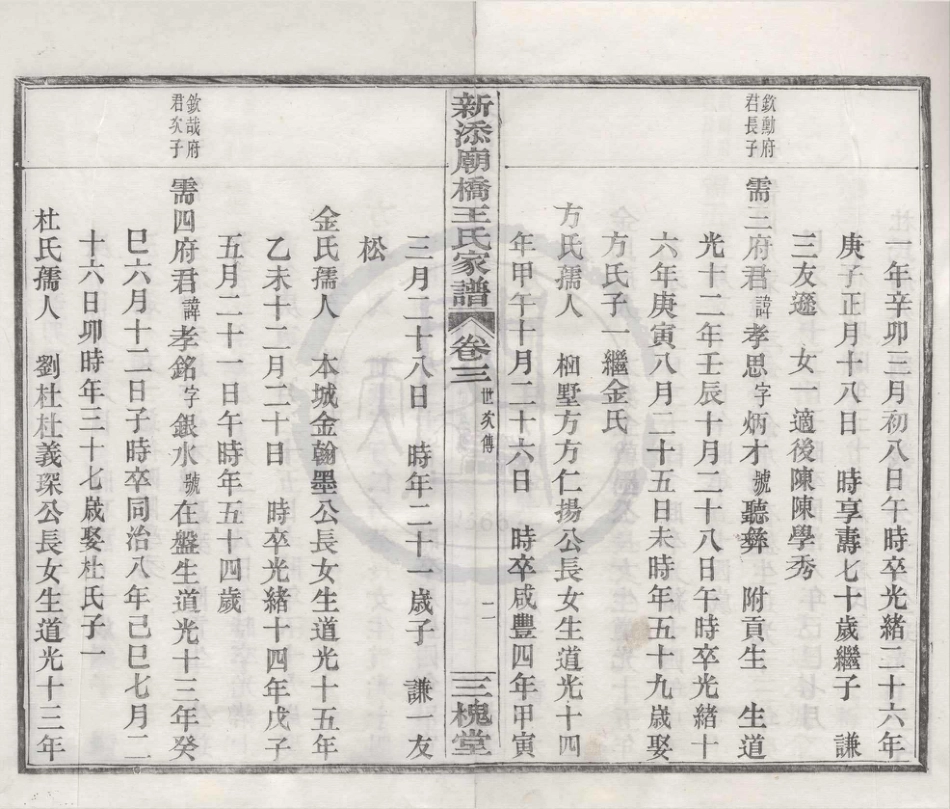 一年辛卯三月初八日午時卒光緒二十六年
庚子正月十八日　時享壽七十歲繼子　謙
三友遜　女一適後陳陳學秀
欽勳府
君長子
需三府君諱孝思字炳才號聽彝　附貢生　生道
光十二年壬辰十月二十八日午時卒光緒十
六年庚寅八月二十五日未時年五十九歲娶
方氏子一繼金氏
方氏孺人　棝墅方方仁揚公長女生道光十四
年甲午十月二十六日　時卒咸豐四年甲寅
新添廟橋王氏家譜　卷三　世次傳　二　三槐堂
三月二十八日　時年二十一歲子　謙一友
松
金氏孺人　本城金翰墨公長女生道光十五年
乙未十二月二十日　時卒光緒十四年戊子
五月二十一日午時年五十四歲
欽哉府
君次子
需四府君諱孝銘字銀水號在盤生道光十三年癸
巳六月十二日子時卒同治八年己巳七月二
十六日卯時年三十七歲娶杜氏子一
杜氏孺人　劉杜杜義琛公長女生道光十三年